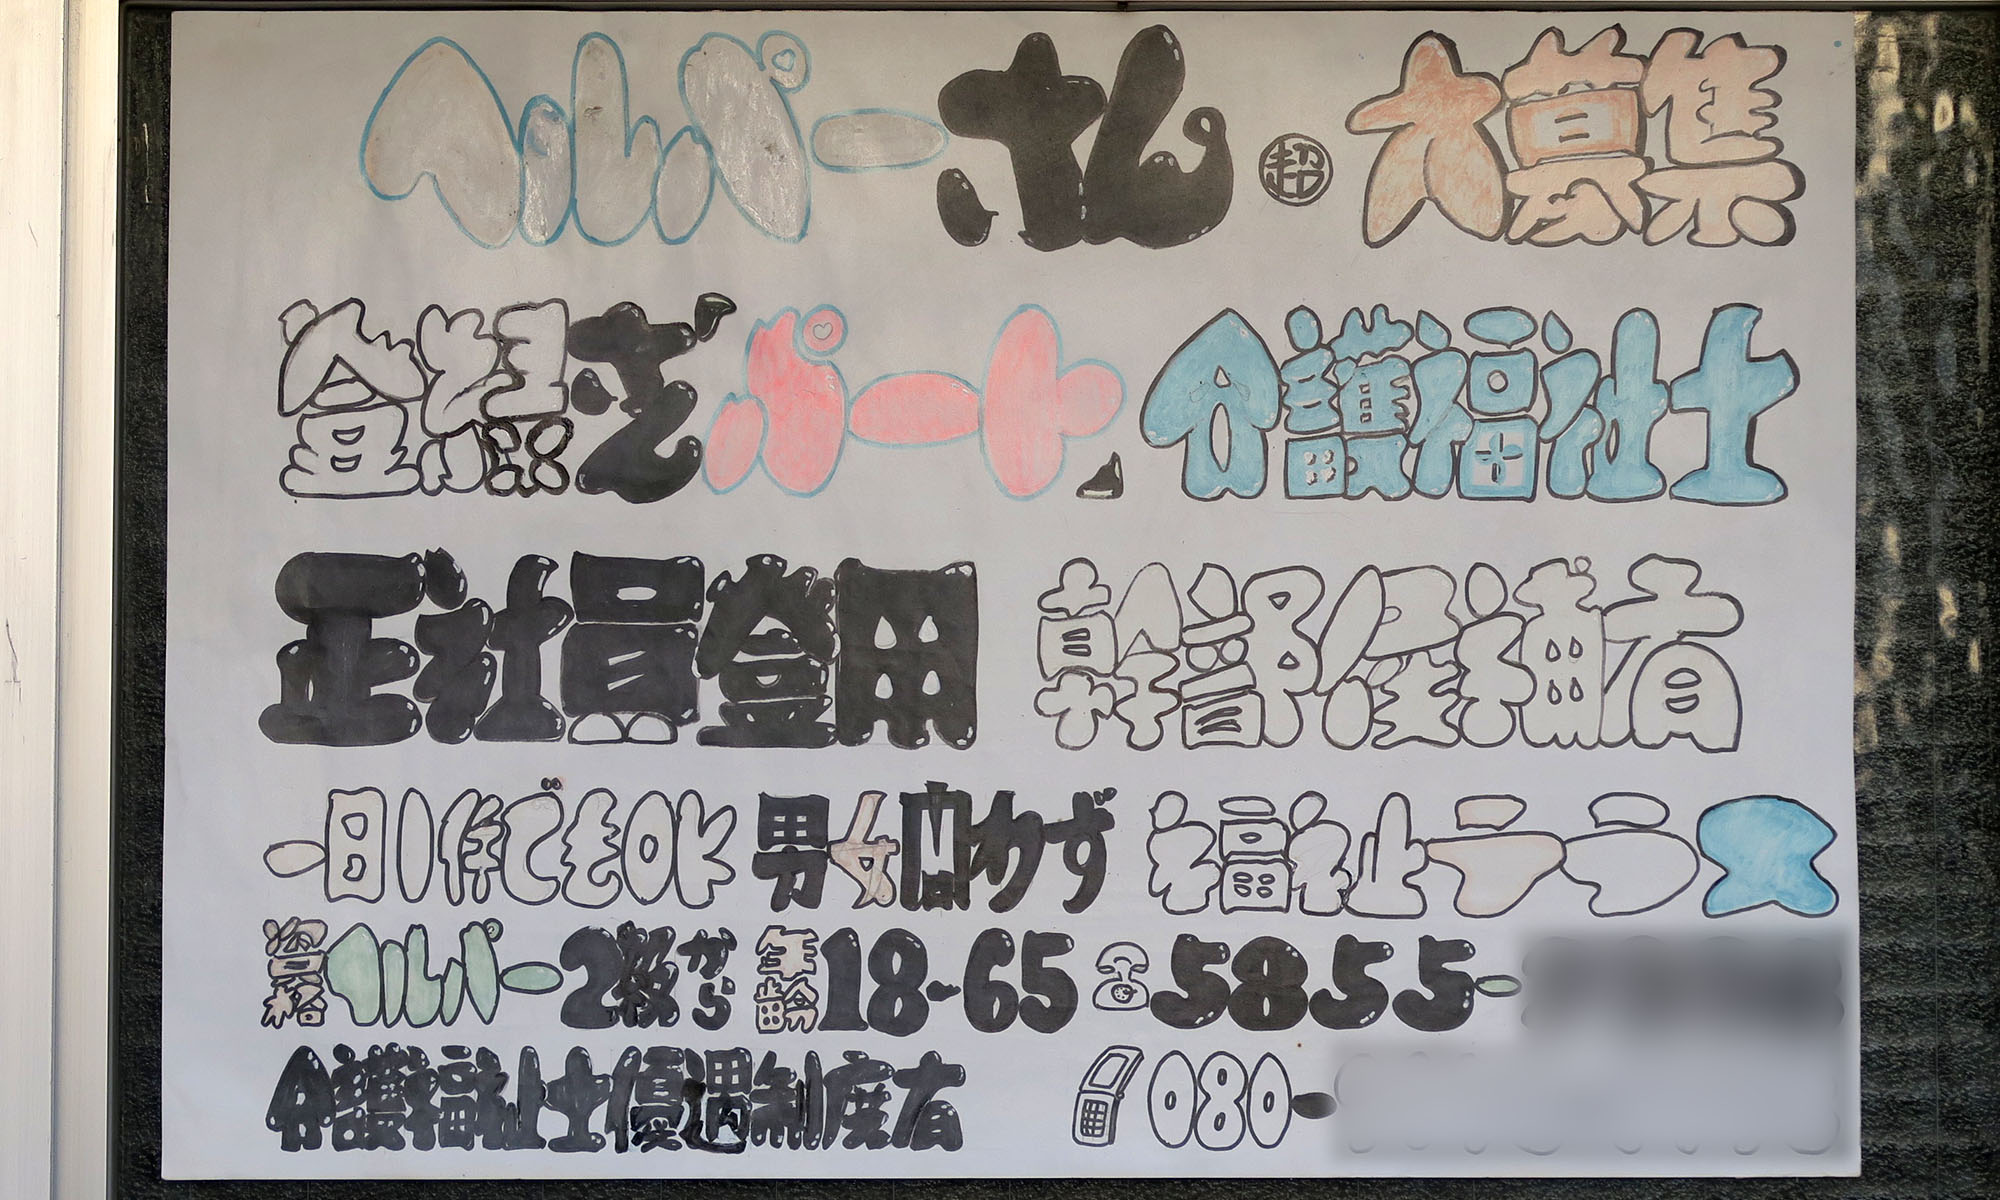 ヘルパーさん 超 大募集
「パート」 介護福祉士
正社員登用 幹部候補者
一日1件でもOK 男女問わず 福祉テラス
資格ヘルパー2級から 年齢18-65 ☎5855-
介護福祉士優遇制度有 080-